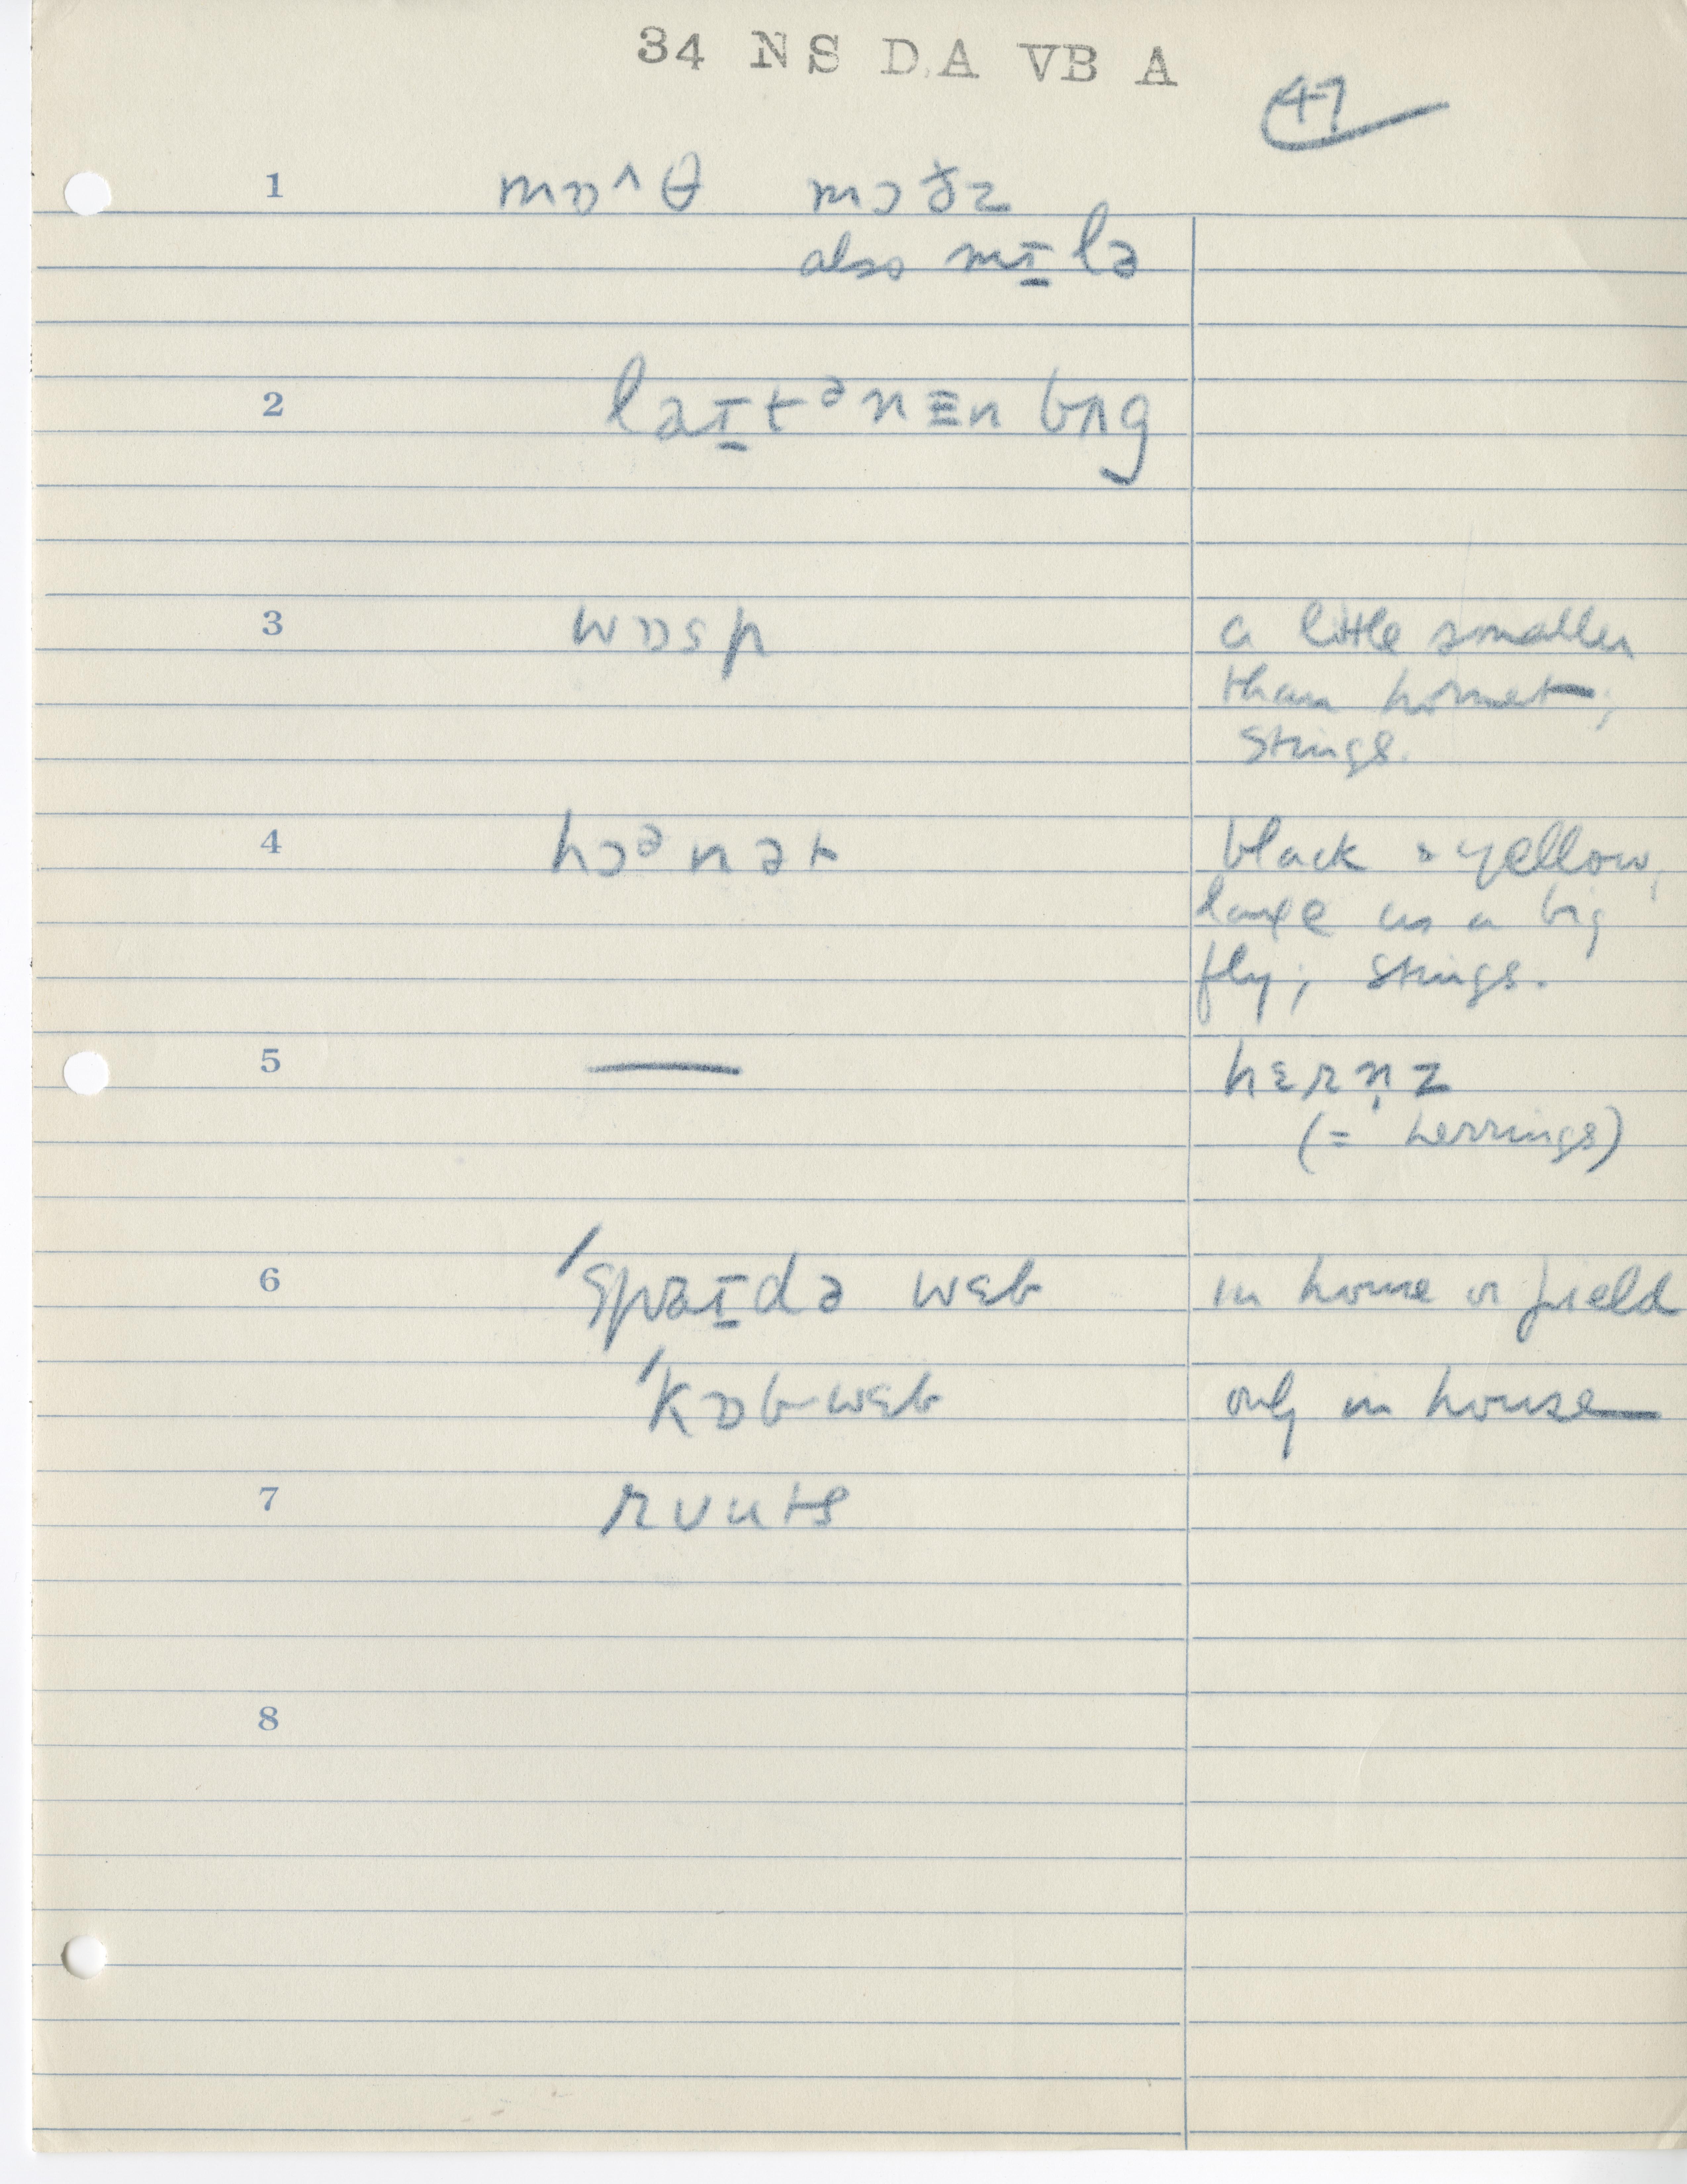 34 NS DA VB A
47
1 mɒ^θ mɔðz
also mɪ̱lə
2 laɪ̱tᵊnɪn bʌg
3 wɒsp a little smaller
than hornet;
stings.
4 hɔᵊnət black & yellow,
large as a big
fly; stings.
5 — hɛrn̩z
(= herrings)
6 ˈspaɪ̱də wɛb in house or field
ˈkɒbwɛb only in house
7 rᴜuts
8